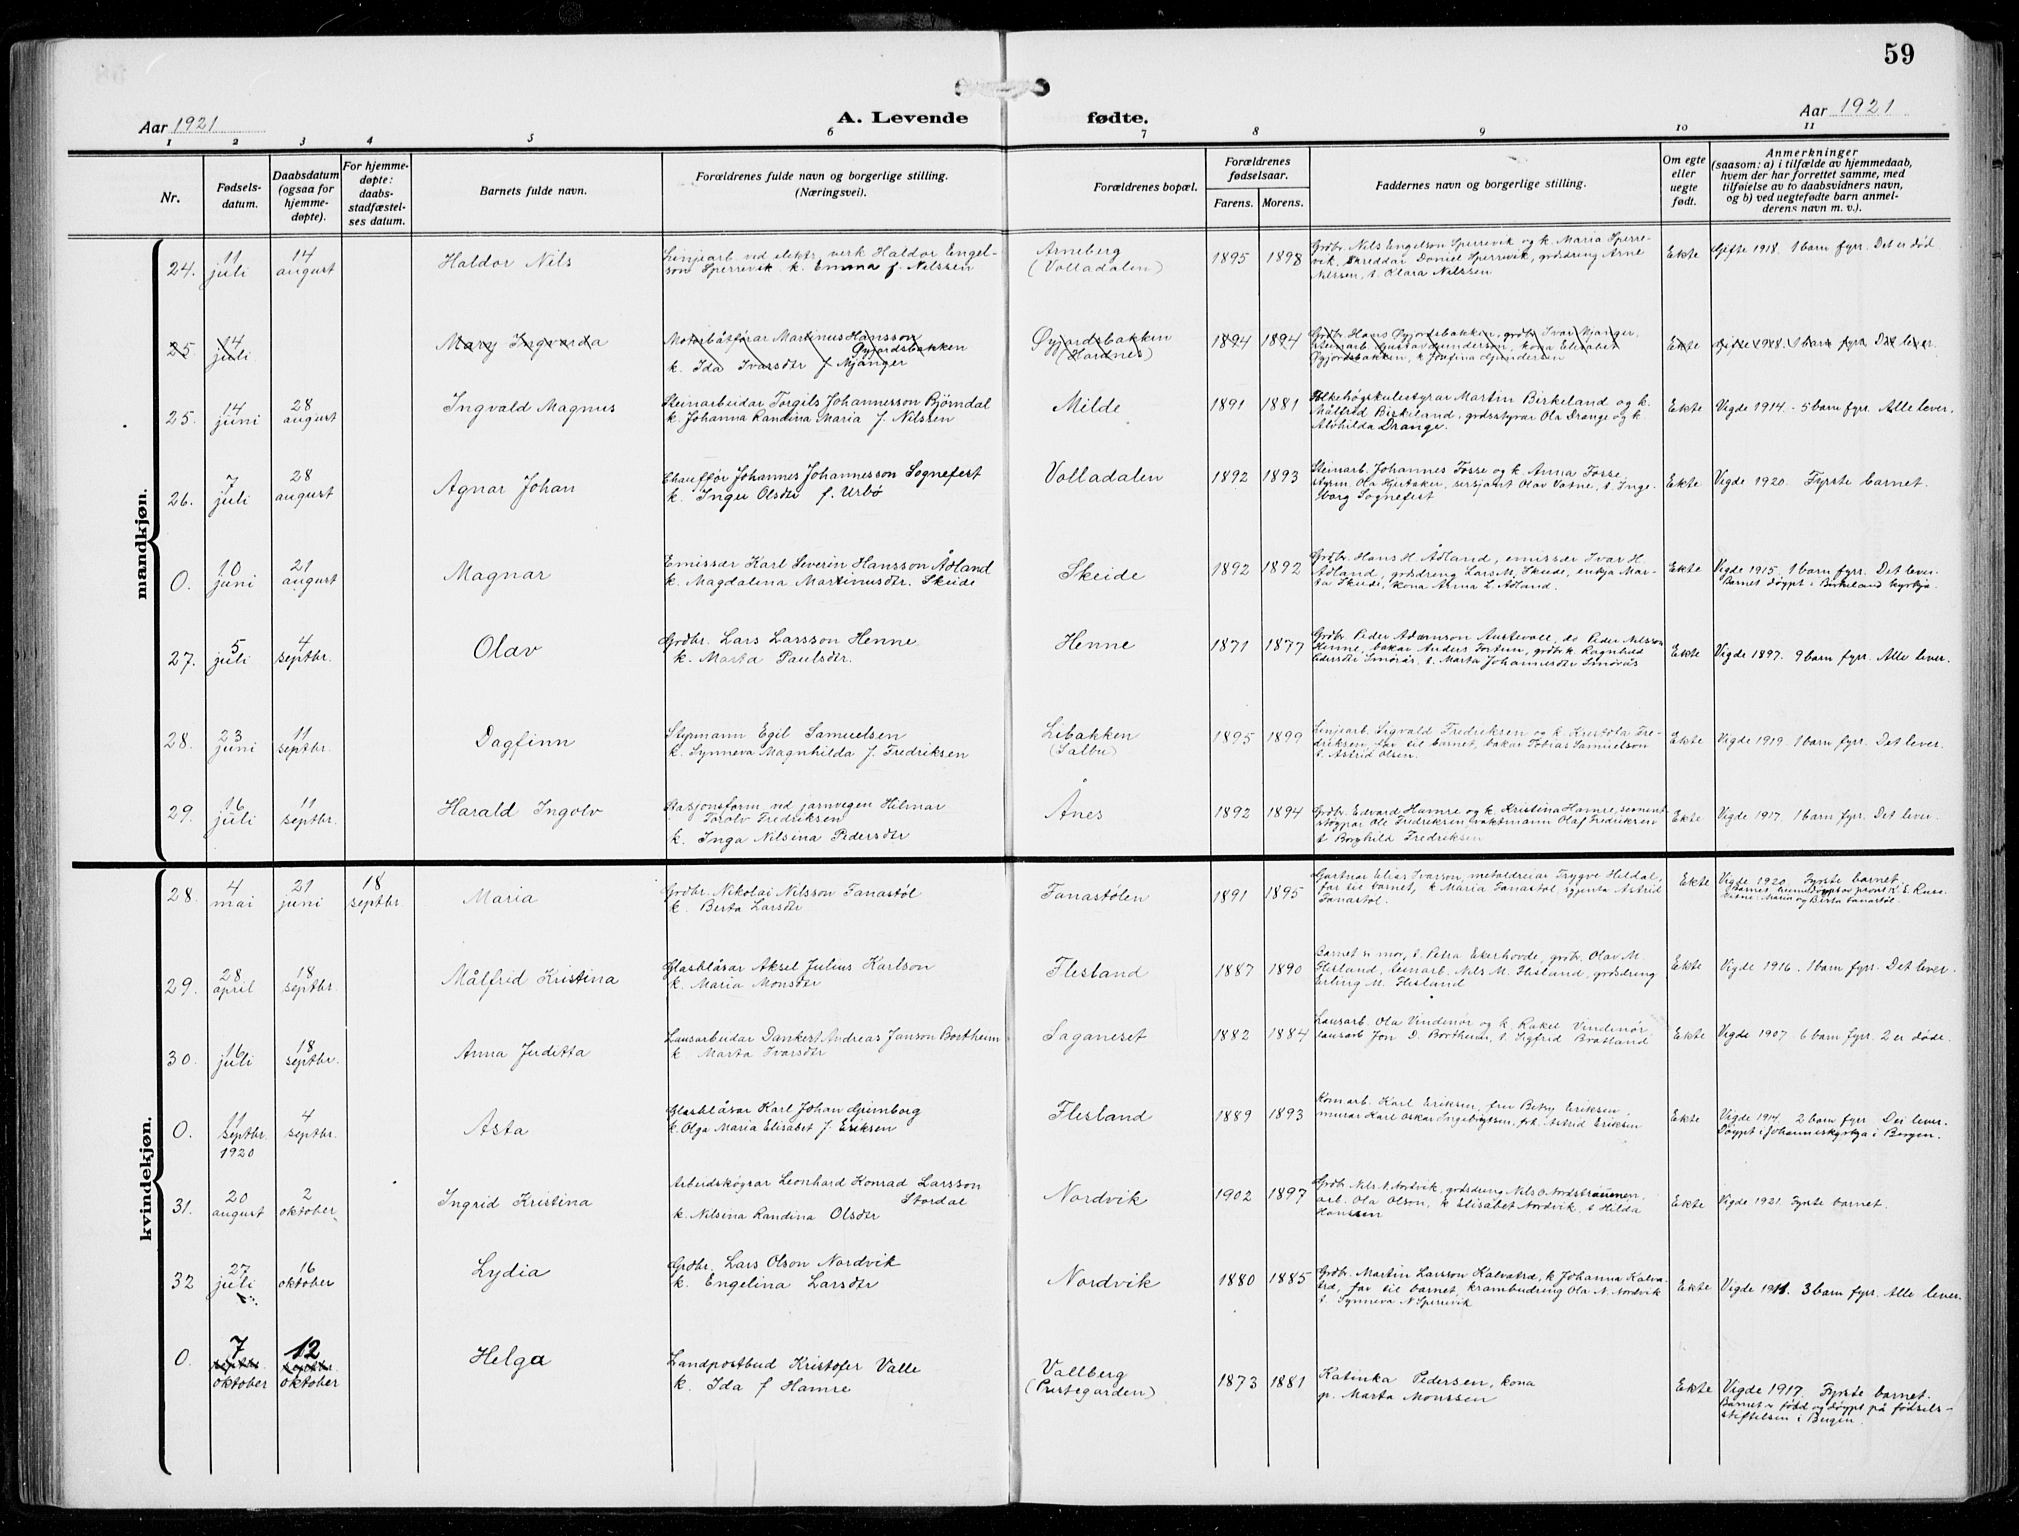 59
Aar 1921
A. Levende fødte.
Aar 1921
1 2 3 4 5 6 7 8 9 10 11
Nr.
Fødsels-
datum.
Daabsdatum
(ogsaa for
hjemme-
døpte).
For hjemme-
døpte:
daabs-
stadfæstel-
ses datum.
Barnets fulde navn.
Forældrenes fulde navn og borgerlige stilling.
(Næringsvei).
Forældrenes bopæl.
Forældrenes
fødselsaar.
Farens. Morens.
Faddernes navn og borgerlige stilling.
Om egte
eller
uegte
født.
Anmerkninger
(saasom: a) i tilfælde av hjemmedaab,
hvem der har forrettet samme, med
tilføielse av to daabsvidners navn,
og b) ved uegtefødte barn anmel-
derens navn m. v.).
mandkjøn.
24.
11
juli
14
august
Haldor Nils
Linjearb ved elektr. verk Haldor Engel-
son Sperrevik k. Emma f. Nilssen
Arneberg
(Volladalen)
1895 1898
Grdbr. Nils Engelson Sperrevik og k. Maria Sperre-
vik, skreddar Daniel Sperrevik, grdsdreng Arne
Nilssen, t. Olara Nilssen
Ekte
Gifte 1918. 1 barn fyrr. Det er død
25
14
juli
Mary Ingvarda
Motorbåtførar Martinus Hansson
Gyjordsbakken
k. Ida Ivarsdtr f Mjanger
Gyjordsbakken
(Hordnes)
1894 1894
Grdbr. Hans Gyjordsbakken, grdbr Ivar Mjanger,
steinarb. Gustav Gundersen, kona Elisabet
Gyjordsbakken, k Josefina Gundersen
Ekte
Gifte 1918. 1 barn fyrr Det lever.
25.
14
juni
28
august
Ingvald Magnus
Steinarbeidar Torgils Johannesson Bjørndal
k. Johanna Randina Maria f. Nilssen
Milde
1891 1881
Folkehøgskulestyrar Martin Birkeland og k.
Målfrid Birkeland, grdsstyrar Ola Drange og k.
Alvhilda Drange.
Ekte
Vigde 1914. 5 barn fyrr. Alle lever.
26.
7
juli
28
august
Agnar Johan
Chauffør Johannes Johannesson Sognefest
k. Inger Olsdtr f. Urbø
Volladalen
1892 1893
Steinarb. Johannes Fosse og k. Anna Fosse,
styrm. Ola Hjertaker, sersjant Olav Vatne, t. Inge-
borg Sognefest
Ekte
Vigde 1920. Fyrste barnet.
0.
10
juni
21
august
Magnar
Emissær Karl Severin Hansson Ådland
k. Magdalena Martinusdtr. Skeide
Skeide
1892 1892
Grdbr. Hans H. Ådland, emissær Ivar H.
Ådland, grdsdreng Lars M. Skeide, enkja Mar-
ta Skeide, kona Anna L. Ådland.
Ekte
Vigde 1915. 1 barn fyrr. Det lever.
Barnet døypt i Birkeland kyrkja.
27.
5
juli
4
septbr.
Olav
Grdbr. Lars Larsson Henne
k. Marta Paulsdtr.
Henne
1871 1877
Grdbr. Peder Adamson Austevoll, do Peder Nilsson
Henne, bakar Anders Fortun, grdbrk Ragnhild
Pedersdtr Smørås. t. Marta Johannesdtr Smørås
Ekte
Vigde 1897. 9 barn fyrr. Alle lever.
28.
23
juni
11
septbr.
Dagfinn
Stypmann Egil Samuelsen
k. Synneva Magnhilda f. Fredriksen
Libakken
(Salbu)
1895 1899
Linjearb. Sigvald Fredriksen og k. Kristofa Fre-
driksen, far til barnet, bakar Tobias Samuelson
t. Astrid Olsen.
Ekte
Vigde 1919. 1 barn fyrr. Det lever.
29.
16
juli
11
septbr.
Harald Ingolv
Stasjonsform. ved jarnvegen Hilmar
Torolv Fredriksen
k. Inga Nilsina Pedersdtr
Ånes
1892 1894
Grdbr. Edvard Hamre og k. Kristina Hamre, sement
støypar Ole Fredriksen, vaktmann Olaf Fredriksen
t Borghild Fredriksen
Ekte
Vigde 1917. 1 barn fyrr. Det lever.
kvindekjøn.
28.
4
mai
21
juni
18
septbr.
Maria
Grdbr. Nikolai Nilsson Fanastøl
k. Berta Larsdtr
Fanastølen
1891 1895
Gartnar Elias Ivarson, metaldreiar Trygve Hildal,
far til barnet, k. Maria Fanastøl gjenta Astrid
Fanastøl.
Ekte
Vigde 1920. Fyrste barnet.
Vitne: Maria og Berta Fanastøl.
29.
28
april
18
septbr.
Målfrid Kristina
Glasblåsar Aksel Julius Karlson
k. Maria Monsdtr
Flesland
1887 1890
Barnet si mor, t. Petra Ekerhovde, grdbr. Olav M.
Flesland, steinarb. Nils M. Flesland, grdsdreng
Erling M. Flesland
Ekte
Vigde 1916. 1 barn fyrr. Det lever.
30.
16
juli
18
septbr.
Anna Juditta
Lausarbeidar Dankert Andreas Janson Bortheim
k. Marta Ivarsdtr
Saganeset
1882 1884
Lausarb. Ola Vindenør og k. Rakel Vindenør,
lausarb Jon D. Bortheim, t. Sigfrid Bratland
Ekte
Vigde 1907. 6 barn fyrr. 2 er døde.
0.
11
septbr.
1920
4
septbr.
Asta
Glasblåsar Karl Johan Grimborg
k. Olga Maria Elisabet f. Eriksen
Flesland
1889 1893
Komarb. Karl Eriksen, fru Betsy Eriksen,
murar Karl Oskar Ingebrigtsen, frk. Astrid Eriksen
Ekte
Vigde 1914. 2 barn fyrr. Dei lever.
Døypt i Johanneskyrkja i Bergen.
31.
20
august
2
oktober
Ingrid Kristina
Arbeidskøyrar Leonhard Konrad Larsson
Stordal
k. Nilsina Randina Olsdtr
Nordvik
1902 1897
Grdbr. Nils T. Nordvik, grdsdreng Nils O Nordstraumen,
arb. Ola Olson, k Elisabet Nordvik, t Hilda
Hanssen
Ekte
Vigde 1921. Fyrste barnet.
32
27
juli
16
oktober
Lydia
Grdbr. Lars Olson Nordvik
k. Engelina Larsdtr
Nordvik
1880 1885
Grdbr. Martin Larsson Kalvatræ, k Johanna Kalva-
træ, far til barnet, krambudreng Ola N. Nordvik
t. Synneva N Sperrevik
Ekte
Vigde 1911. 3 barn fyrr. Alle lever.
0.
7
septbr.
oktober
12
septbr.
oktober
Helga
Landpostbud Kristofer Valle
k. Ida f Hamre
Vallberg
(Prestegarden)
1873 1881
Katinka Pedersen, kona
p. Marta Monssen
Ekte
Vigde 1917. Fyrste barnet.
Barnet er født og døypt på fødsels-
stiftelsen i Bergen.